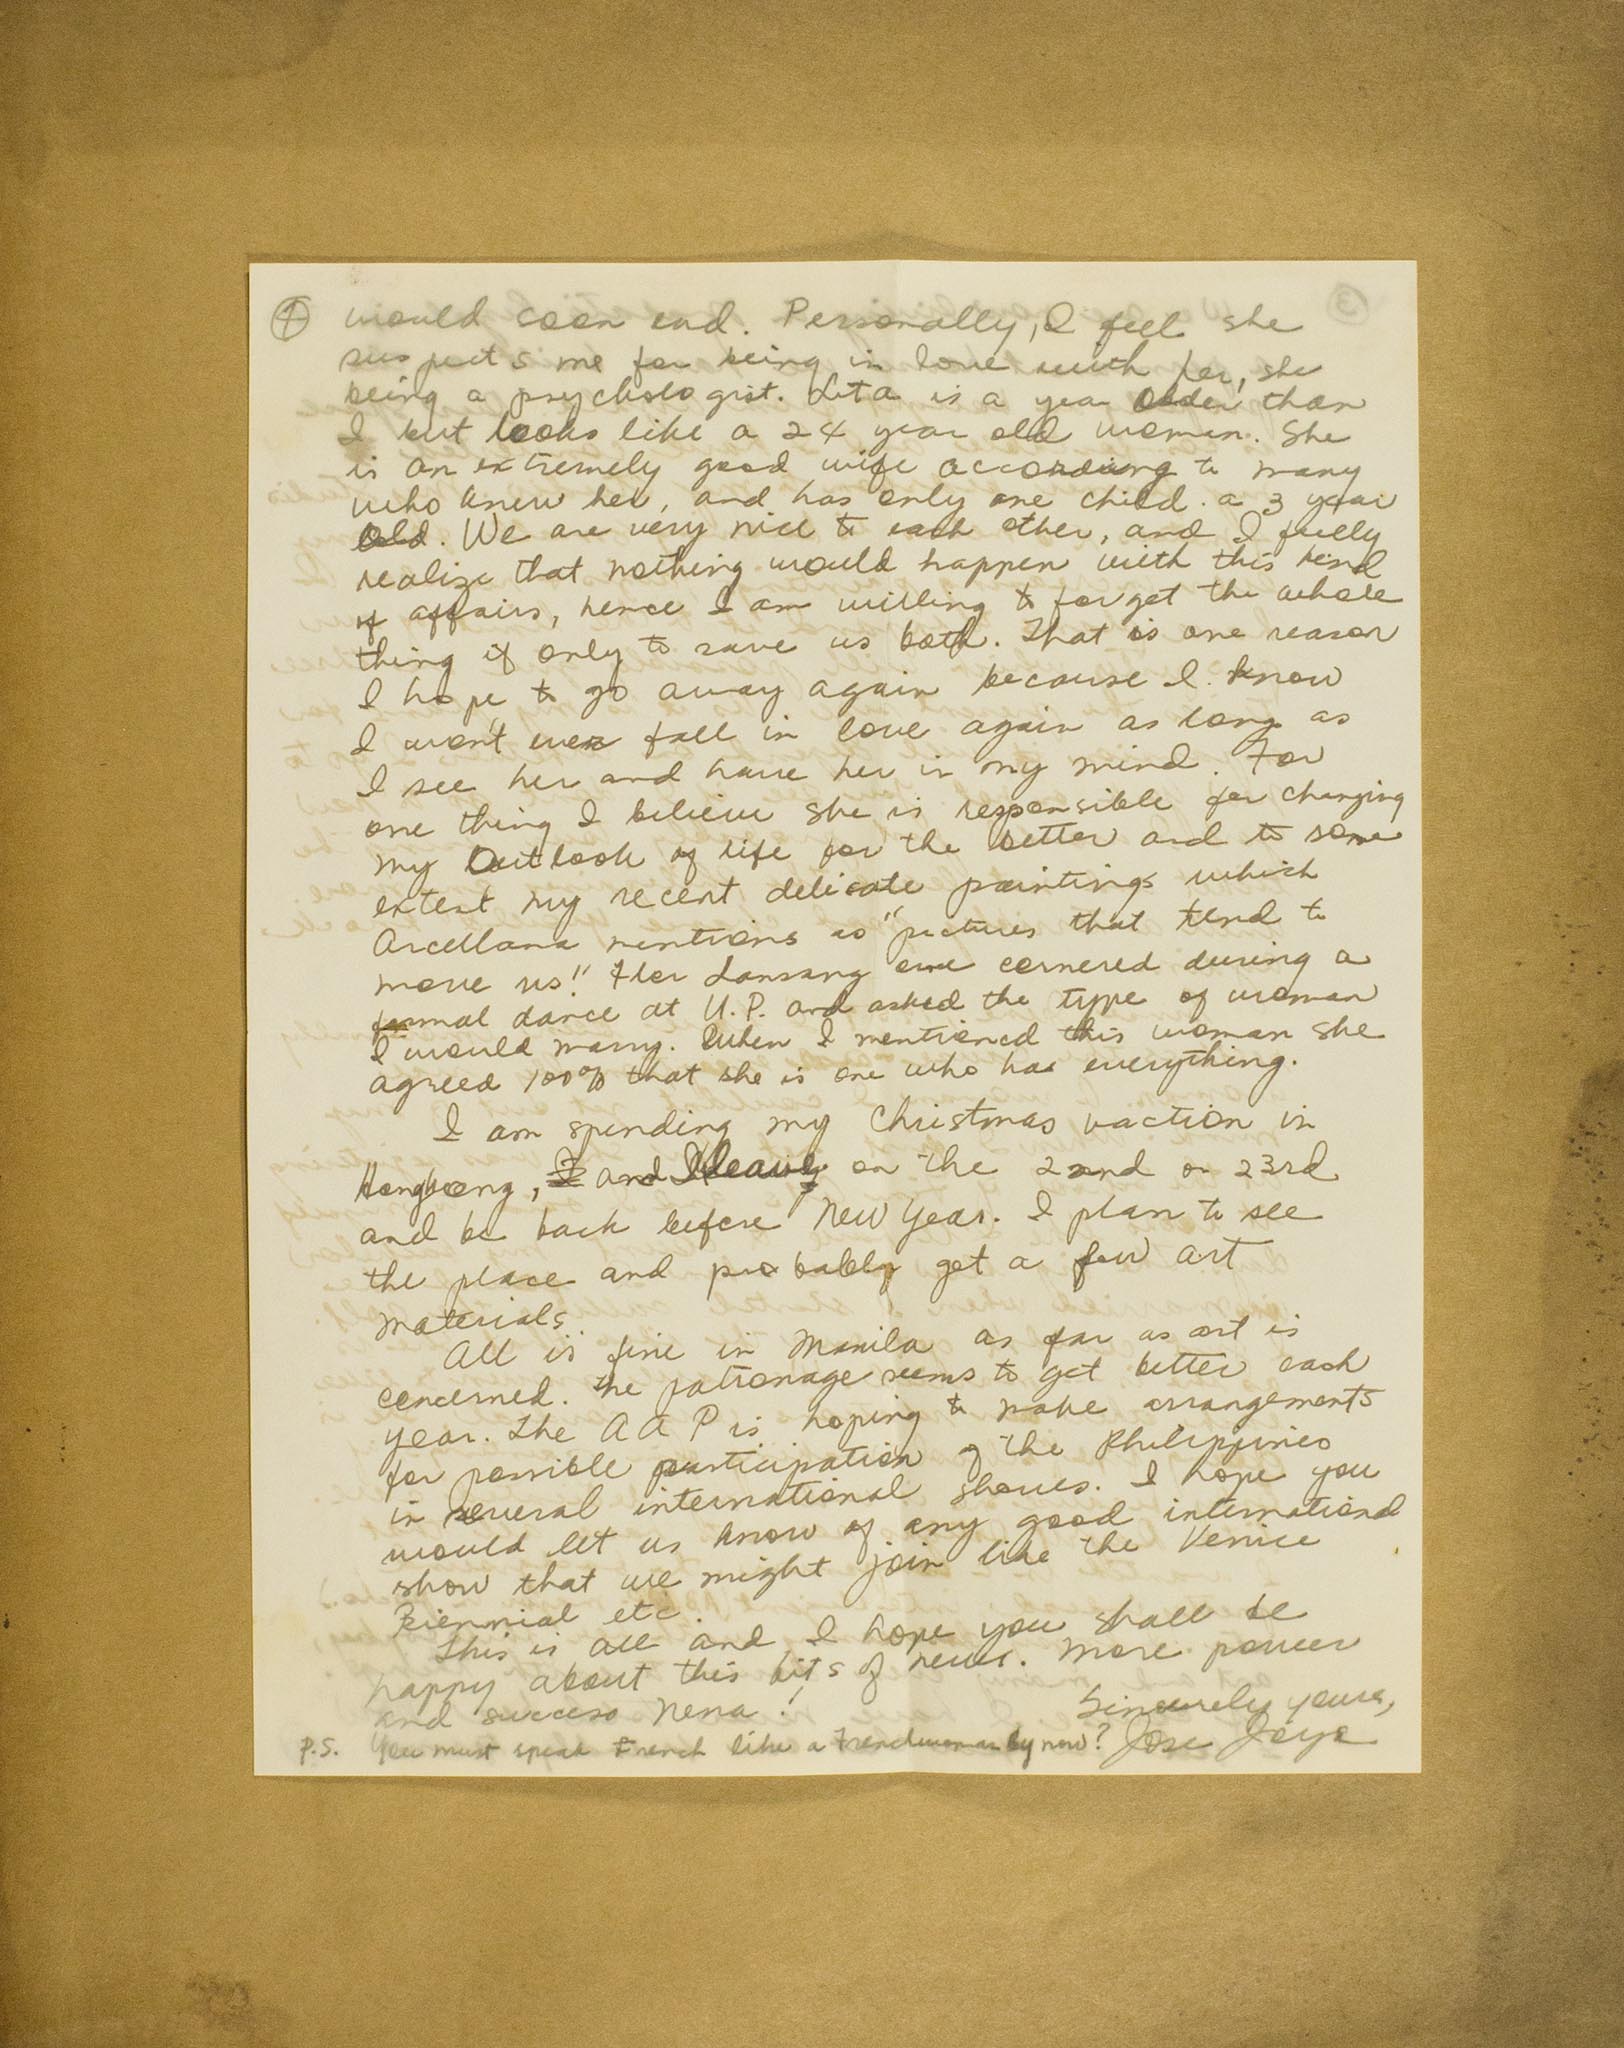 ④ would soon end. Personally, I feel she
suspects me for being in love with her, she
being a psychologist. Lita is a year older than
I but looks like a 24 year old woman. She
is an extremely good wife according to many
who knew her, and has only one child. a 3 year
old. We are very nice to each other, and I fully
realize that nothing would happen with this kind
of affairs, hence I am willing to forget the whole
thing if only to save us both. That is one reason
I hope to go away again because I know
I won't ever fall in love again as long as
I see her and have her in my mind. For
one thing I believe she is responsible for changing
my Outlook of life for the better and to some
extent my recent delicate paintings which
Arcellana mentions as "pictures that tend to
move us!" Flor Lansang one cornered during a
formal dance at U.P. and asked the type of woman
I would marry. When I mentioned this woman she
agreed 100% that she is one who has everything.
I am spending my Christmas vaction in
Hongkong, I and leave on the 22nd or 23rd
and be back before New Year. I plan to see
the place and probably get a few art
materials.
All is fine in Manila as far as art is
concerned. The patronage seems to get better each
year. The AAP is hoping to make arrangements
for possible participation of the Philippines
in several international shows. I hope you
would let us know of any good international
show that we might join like the Venice
Biennial etc.
This is all and I hope you shall be
happy about this bits of news. More power
and success Nena!
Sincerely yours,
Jose Joya
P.S. You must speak French like a Frenchwoman by now?